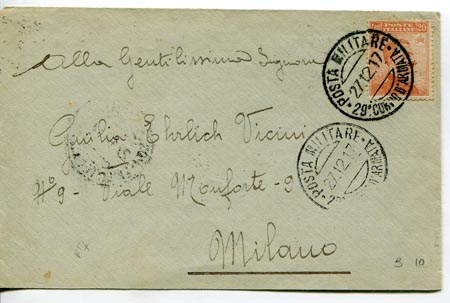 POSTE ITALIANE 20
POSTA MILITARE
27.12.17
29° CORPO D'ARMATA
Alla Gentilissima Signora
POSTA MILITARE
27.12.17
Giulia Ehrlich Vicini
N° 9 - Viale Monforte - 9
Milano